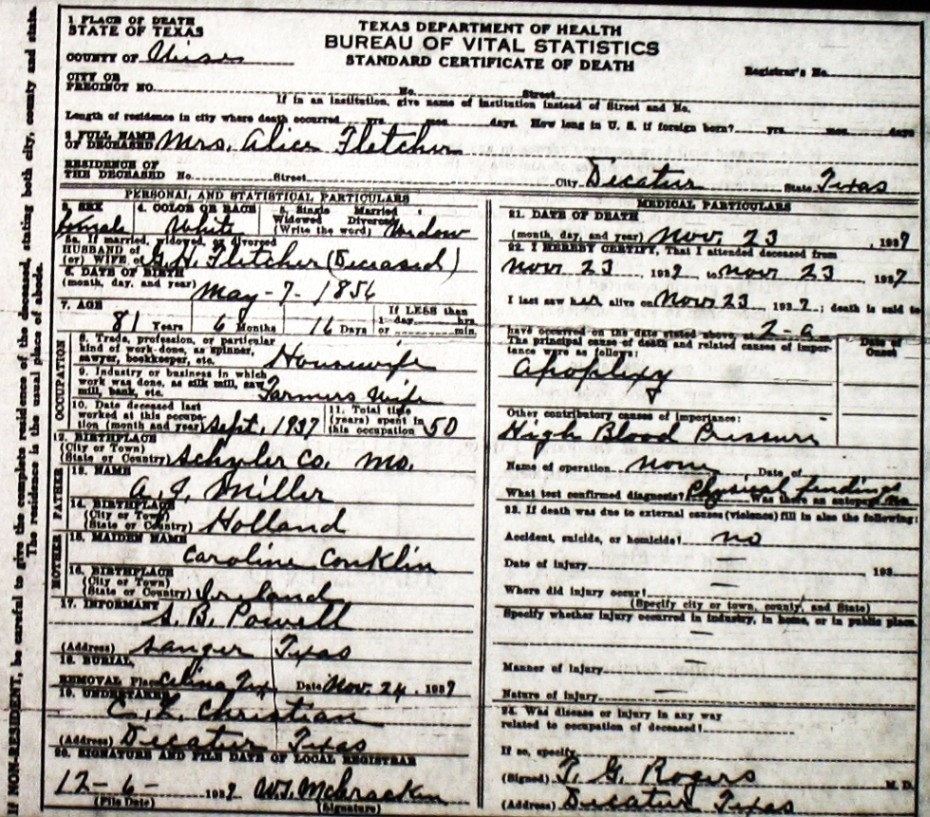 1 PLACE OF DEATH
STATE OF TEXAS
COUNTY OF Wise
CITY OR
PRECINCT NO.
TEXAS DEPARTMENT OF HEALTH
BUREAU OF VITAL STATISTICS
STANDARD CERTIFICATE OF DEATH
Registrar's No.
No. Street
If in an institution, give name of institution instead of Street and No.
Length of residence in city where death occurred yrs. mos. days. How long in U. S. if foreign born? yrs. mos. days
2 FULL NAME
OF DECEASED Mrs. Alice Fletcher
RESIDENCE OF
THE DECEASED No. Street City Decatur State Texas
PERSONAL AND STATISTICAL PARTICULARS
3. SEX 4. COLOR OR RACE 5. Single Married
Widowed Divorced
Female White (Write the word) Widow
5a. If married, widowed, or divorced
HUSBAND of
(or) WIFE of G. H. Fletcher (Deceased)
6. DATE OF BIRTH
(month, day, and year) May - 7 - 1856
7. AGE If LESS than
1 day, hrs.
81 Years 6 Months 16 Days or min.
OCCUPATION
8. Trade, profession, or particular
kind of work done, as spinner,
sawyer, bookkeeper, etc. Housewife
9. Industry or business in which
work was done, as silk mill, saw
mill, bank, etc. Farmers Wife
10. Date deceased last
worked at this occupa-
tion (month and year) Sept, 1937
11. Total time
(years) spent in
this occupation 50
12. BIRTHPLACE
(City or Town)
(State or Country) Schyler Co, Mo.
FATHER
13. NAME
Miller
14. BIRTHPLACE
(City or Town)
(State or Country) Holland
MOTHER
15. MAIDEN NAME
Caroline Conklin
16. BIRTHPLACE
(City or Town)
(State or Country) Ireland
17. INFORMANT
S. B. Powell
(Address) Sanger Texas
18. BURIAL,
REMOVAL Place Celina Tex Date Nov. 24, 1937
19. UNDERTAKER
C. L. Christian
(Address) Decatur Texas
20. SIGNATURE AND FILE DATE OF LOCAL REGISTRAR
12 - 6 - 1937 W. T. McCracken
(File Date) (Signature)
MEDICAL PARTICULARS
21. DATE OF DEATH
(month, day, and year) Nov 23, 1937
22. I HEREBY CERTIFY, That I attended deceased from
Nov 23 1937, to Nov 23 1937
I last saw her alive on Nov 23 1937; death is said to
have occurred on the date stated above, at 2-a
The principal cause of death and related causes of impor-
tance were as follows:
Date of
Onset
Apoplexy
Other contributory causes of importance:
High Blood Pressure
Name of operation none Date of
What test confirmed diagnosis? Physical findings Was there an autopsy no
23. If death was due to external causes (violence) fill in also the following:
Accident, suicide, or homicide? no
Date of injury — 193
Where did injury occur? —
(Specify city or town, county, and State)
Specify whether injury occurred in industry, in home, or in public place.
—
Manner of injury —
Nature of injury —
24. Was disease or injury in any way
related to occupation of deceased?
If so, specify
(Signed) T. G. Rogers M. D.
(Address) Decatur Texas
If NON-RESIDENT, be careful to give the complete residence of the deceased, stating both city, county and state.
The residence is the usual place of abode.